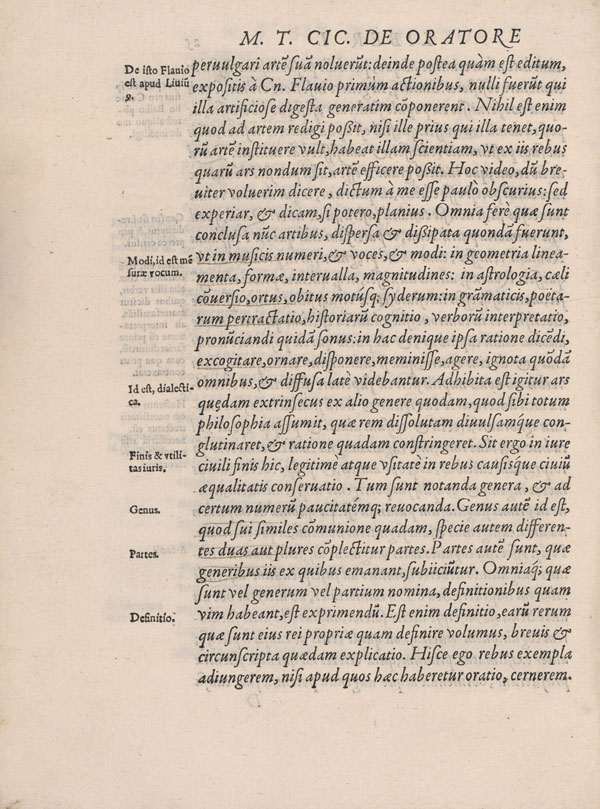 M. T. CIC. DE ORATORE
De isto Flauio
est apud Liuiũ
9.
peruulgari artẽ suã noluerũt: deinde postea quàm est editum,
expositis à Cn. Flauio primùm actionibus, nulli fuerũt qui
illa artificiose digesta generatim cõponerent. Nihil est enim
quod ad artem redigi poßit, nisi ille prius qui illa tenet, quo-
rũ artẽ instituere vult, habeat illam scientiam, vt ex iis rebus
quarũ ars nondum sit, artẽ efficere poßit. Hoc video, dũ bre-
uiter voluerim dicere, dictum à me esse paulò obscurius: sed
experiar, & dicam, si potero, planius. Omnia ferè quæ sunt
conclusa nũc artibus, dispersa & dißipata quondã fuerunt,
Modi, id est mẽ
suræ vocum.
vt in musicis numeri, & voces, & modi: in geometria linea-
menta, formæ, interualla, magnitudines: in astrologia, cæli
cõuersio, ortus, obitus motúsq; syderum: in grãmaticis, poëta-
rum pertractatio, historiarũ cognitio, verborũ interpretatio,
pronũciandi quidã sonus: in hac denique ipsa ratione dicẽdi,
excogitare, ornare, disponere, meminisse, agere, ignota quõdã
Id est, dialecti-
ca.
omnibus, & diffusa latè videbantur. Adhibita est igitur ars
quędam extrinsecus ex alio genere quodam, quod sibi totum
philosophia assumit, quæ rem dissolutam diuulsamq́ue con-
glutinaret, & ratione quadam constringeret. Sit ergo in iure
Finis & vtili-
tas iuris.
ciuili finis hic, legitimæ atque vsitatæ in rebus causisq́ue ciuiũ
æqualitatis conseruatio. Tum sunt notanda genera, & ad
Genus.
certum numerũ paucitatémq; reuocanda. Genus autẽ id est,
quod sui similes cõmunione quadam, specie autem differen-
Partes.
tes duas aut plures cõplectitur partes. Partes autẽ sunt, quæ
generibus iis ex quibus emanant, subiiciũtur. Omniaq́; quæ
sunt vel generum vel partium nomina, definitionibus quam
Definitio.
vim habeant, est exprimendũ. Est enim definitio, earũ rerum
quæ sunt eius rei propriæ quam definire volumus, breuis &
circunscripta quædam explicatio. Hisce ego rebus exempla
adiungerem, nisi apud quos hæc haberetur oratio, cernerem.